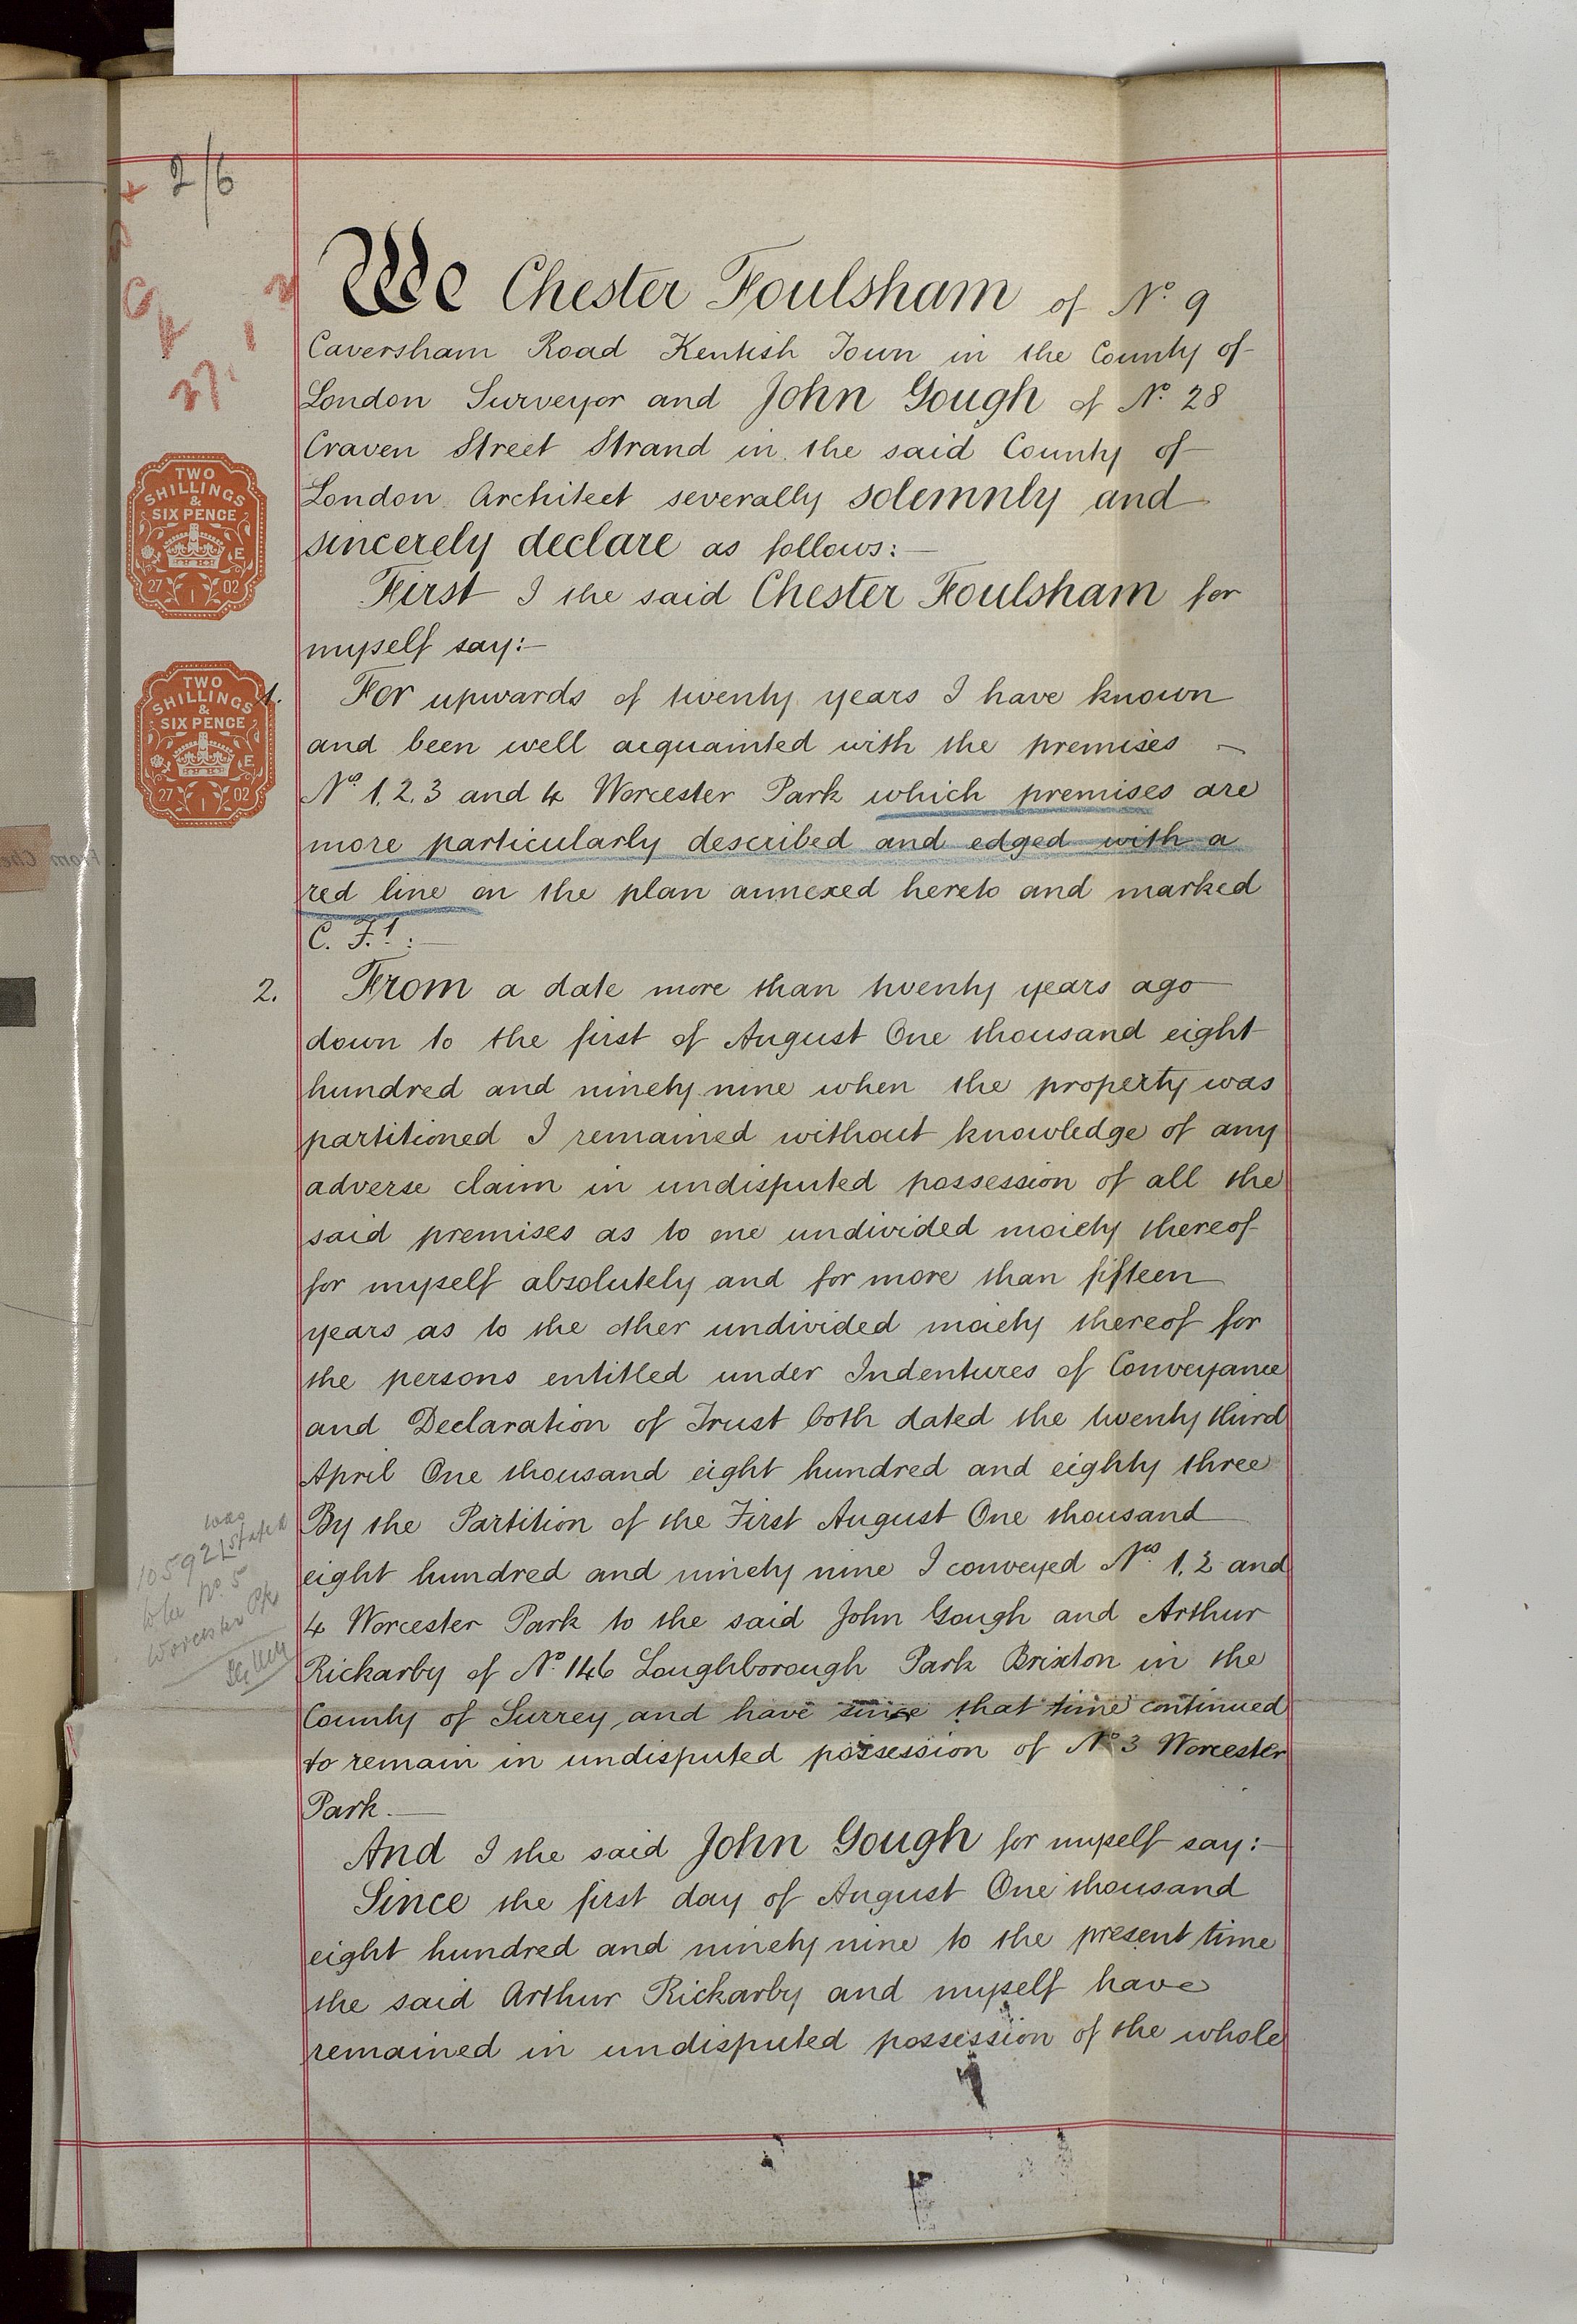 2/6
TWO
SHILLINGS
&
SIX PENCE
E
27 02
1
TWO
SHILLINGS
&
SIX PENCE
E
27 02
1
We Chester Foulsham of No. 9
Caversham Road Kentish Town in the County of
London Surveyor and John Gough of No. 28
Craven Street Strand in the said County of
London Architect severally solemnly and
sincerely declare as follows:—
First I the said Chester Foulsham for
myself say:—
1. For upwards of twenty years I have known
and been well acquainted with the premises
Nos 1, 2, 3 and 4 Worcester Park which premises are
more particularly described and edged with a
red line on the plan annexed hereto and marked
C. F. 1 :—
2. From a date more than twenty years ago
down to the first of August One thousand eight
hundred and ninety nine when the property was
partitioned I remained without knowledge of any
adverse claim in undisputed possession of all the
said premises as to one undivided moiety thereof
for myself absolutely and for more than fifteen
years as to the other undivided moiety thereof for
the persons entitled under Indentures of Conveyance
and Declaration of Trust both dated the twenty third
April One thousand eight hundred and eighty three
By the Partition of the First August One thousand
eight hundred and ninety nine I conveyed Nos. 1, 2 and
4 Worcester Park to the said John Gough and Arthur
Rickarby of No. 146 Loughborough Park Brixton in the
County of Surrey and have since that time continued
to remain in undisputed possession of No 3 Worcester
Park.—
And I the said John Gough for myself say:—
Since the first day of August One thousand
eight hundred and ninety nine to the present time
the said Arthur Rickarby and myself have
remained in undisputed possession of the whole
was
105921 stated
to be No. 5
Worcester Pk